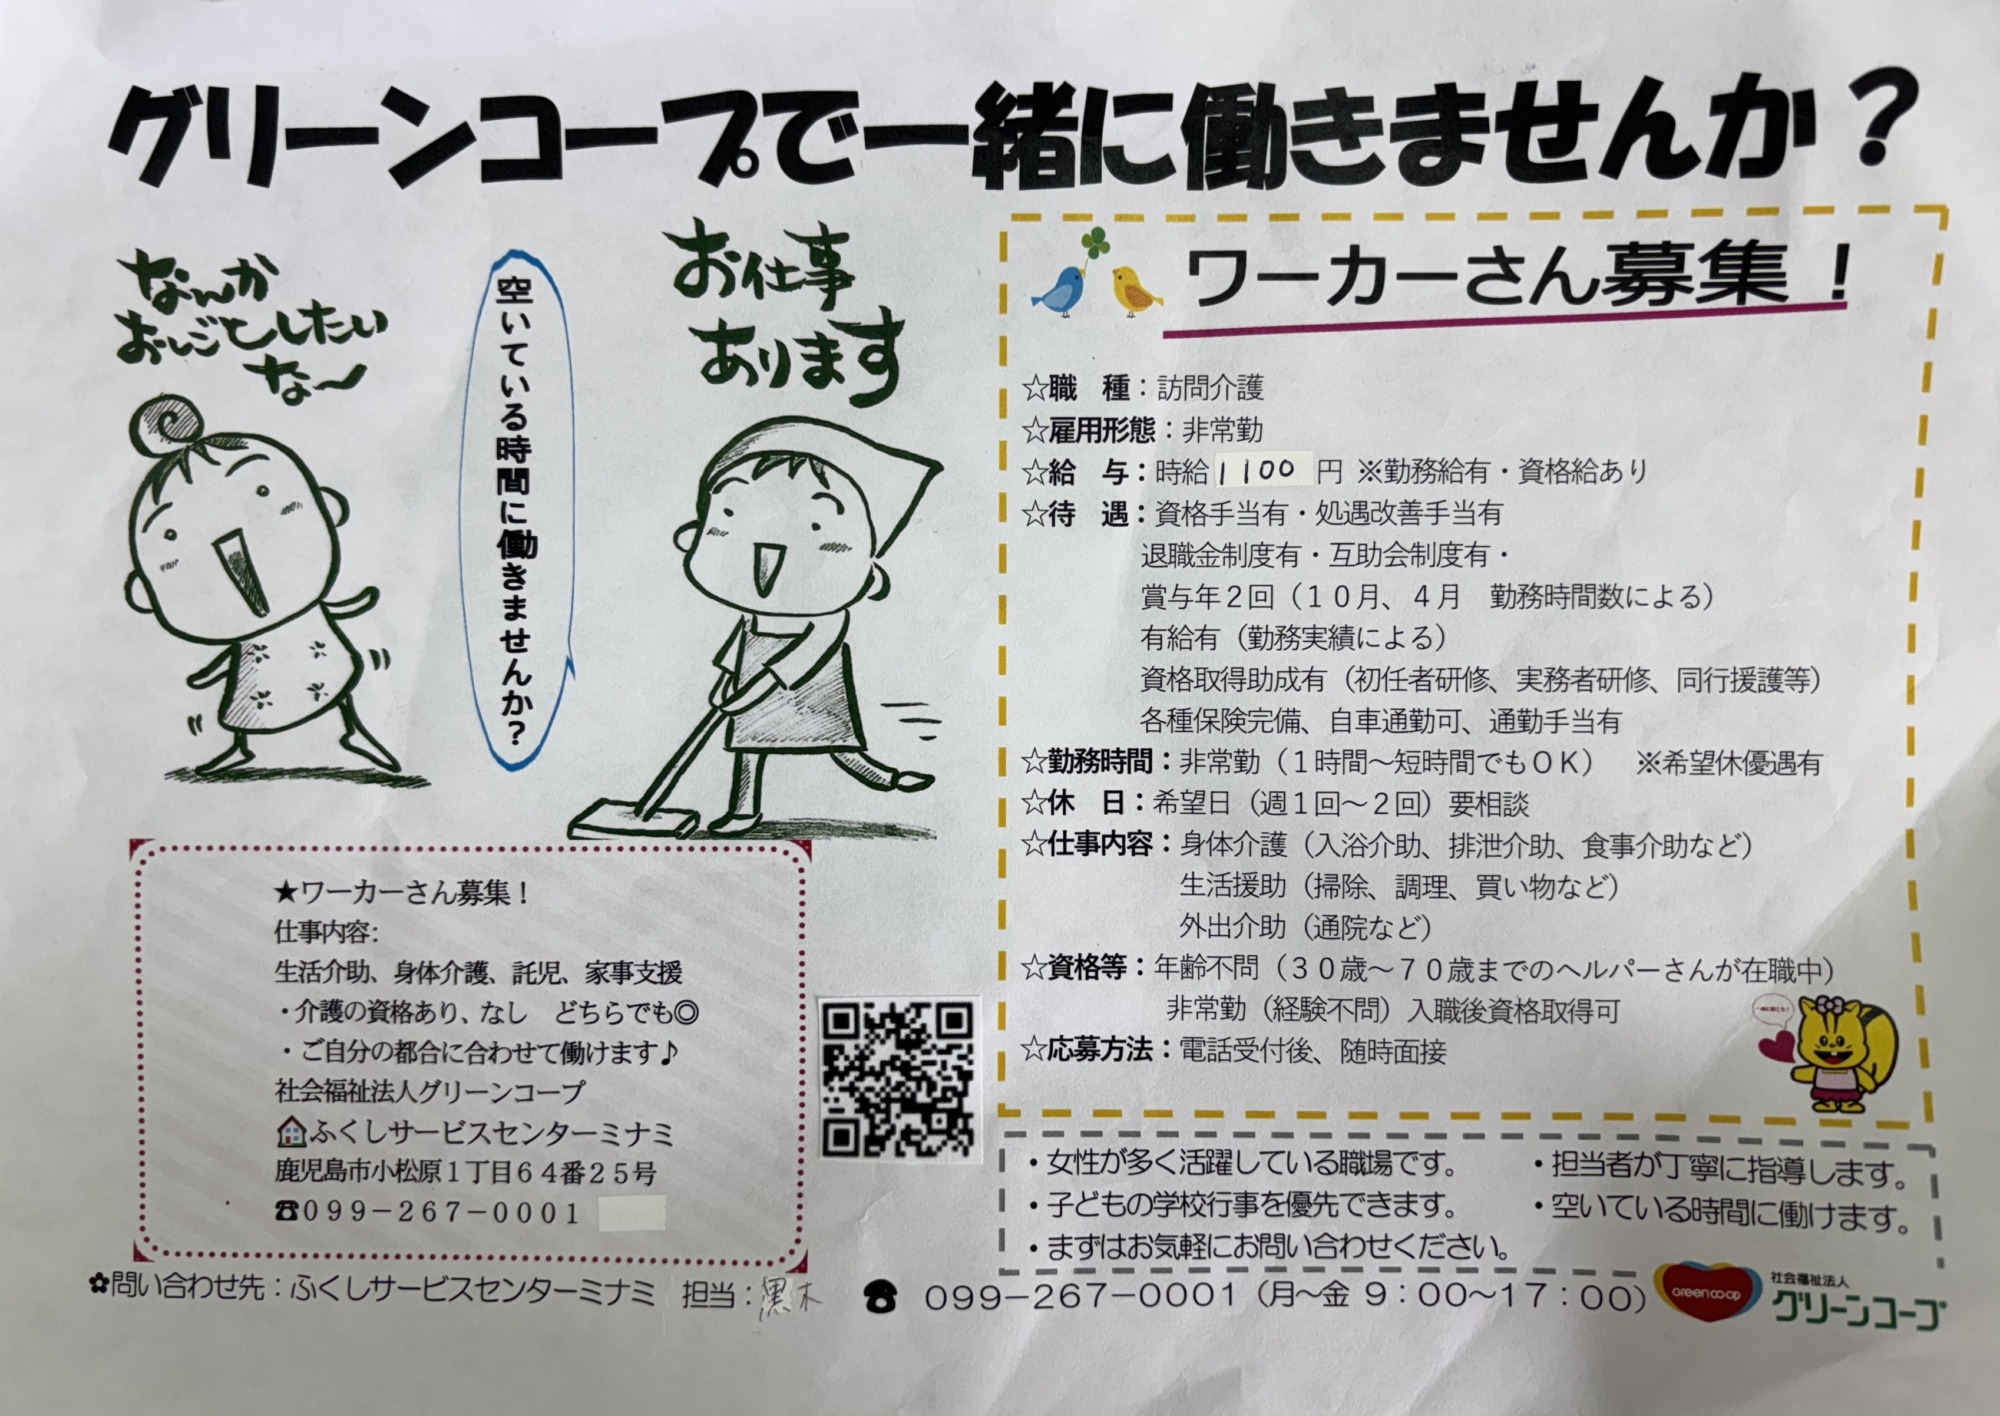 グリーンコープで一緒に働きませんか？
なんか
おしごとしたい
な〜
空いている時間に働きませんか？
お仕事
あります
ワーカーさん募集！
☆職　種：訪問介護
☆雇用形態：非常勤
☆給　与：時給1100円 ※勤務給有・資格給あり
☆待　遇：資格手当有・処遇改善手当有
退職金制度有・互助会制度有・
賞与年２回（１０月、４月　勤務時間数による）
有給有（勤務実績による）
資格取得助成有（初任者研修、実務者研修、同行援護等）
各種保険完備、自車通勤可、通勤手当有
☆勤務時間：非常勤（１時間〜短時間でもＯＫ）　※希望休優遇有
☆休　日：希望日（週１回〜２回）要相談
☆仕事内容：身体介護（入浴介助、排泄介助、食事介助など）
生活援助（掃除、調理、買い物など）
外出介助（通院など）
☆資格等：年齢不問（３０歳〜７０歳までのヘルパーさんが在職中）
非常勤（経験不問）入職後資格取得可
☆応募方法：電話受付後、随時面接
★ワーカーさん募集！
仕事内容:
生活介助、身体介護、託児、家事支援
・介護の資格あり、なし　どちらでも◎
・ご自分の都合に合わせて働けます♪
社会福祉法人グリーンコープ
ふくしサービスセンターミナミ
鹿児島市小松原１丁目６４番２５号
☎０９９－２６７－０００１
・女性が多く活躍している職場です。
・子どもの学校行事を優先できます。
・まずはお気軽にお問い合わせください。
・担当者が丁寧に指導します。
・空いている時間に働けます。
✿問い合わせ先：ふくしサービスセンターミナミ　担当：黒木　☎ ０９９－２６７－０００１（月〜金 ９：００〜１７：００）
green co-op
社会福祉法人
グリーンコープ